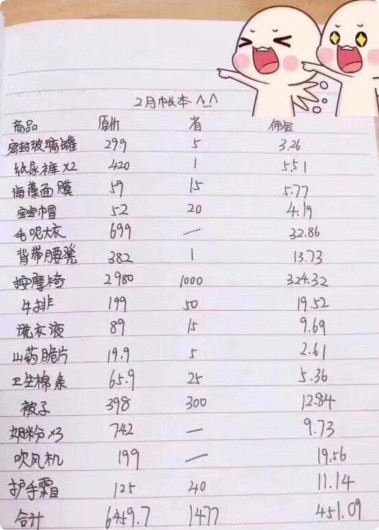 2月帐本^_^
商品 原价 省 佣金
密封玻璃罐 299 5 3.26
纸尿裤x2 420 1 5.51
海藻面膜 59 15 5.77
帽 52 20 4.19
毛呢大衣 699 — 32.86
背带腰凳 382 1 13.73
按摩椅 2980 1000 324.32
牛排 199 50 19.52
洗衣液 89 15 9.69
山药脆片 19.9 5 2.61
卫生棉条 65.9 25 5.36
被子 398 300 12.84
奶粉x3 742 — 9.73
吹风机 199 — 19.56
护手霜 125 40 11.14
合计 6459.7 1477 451.09